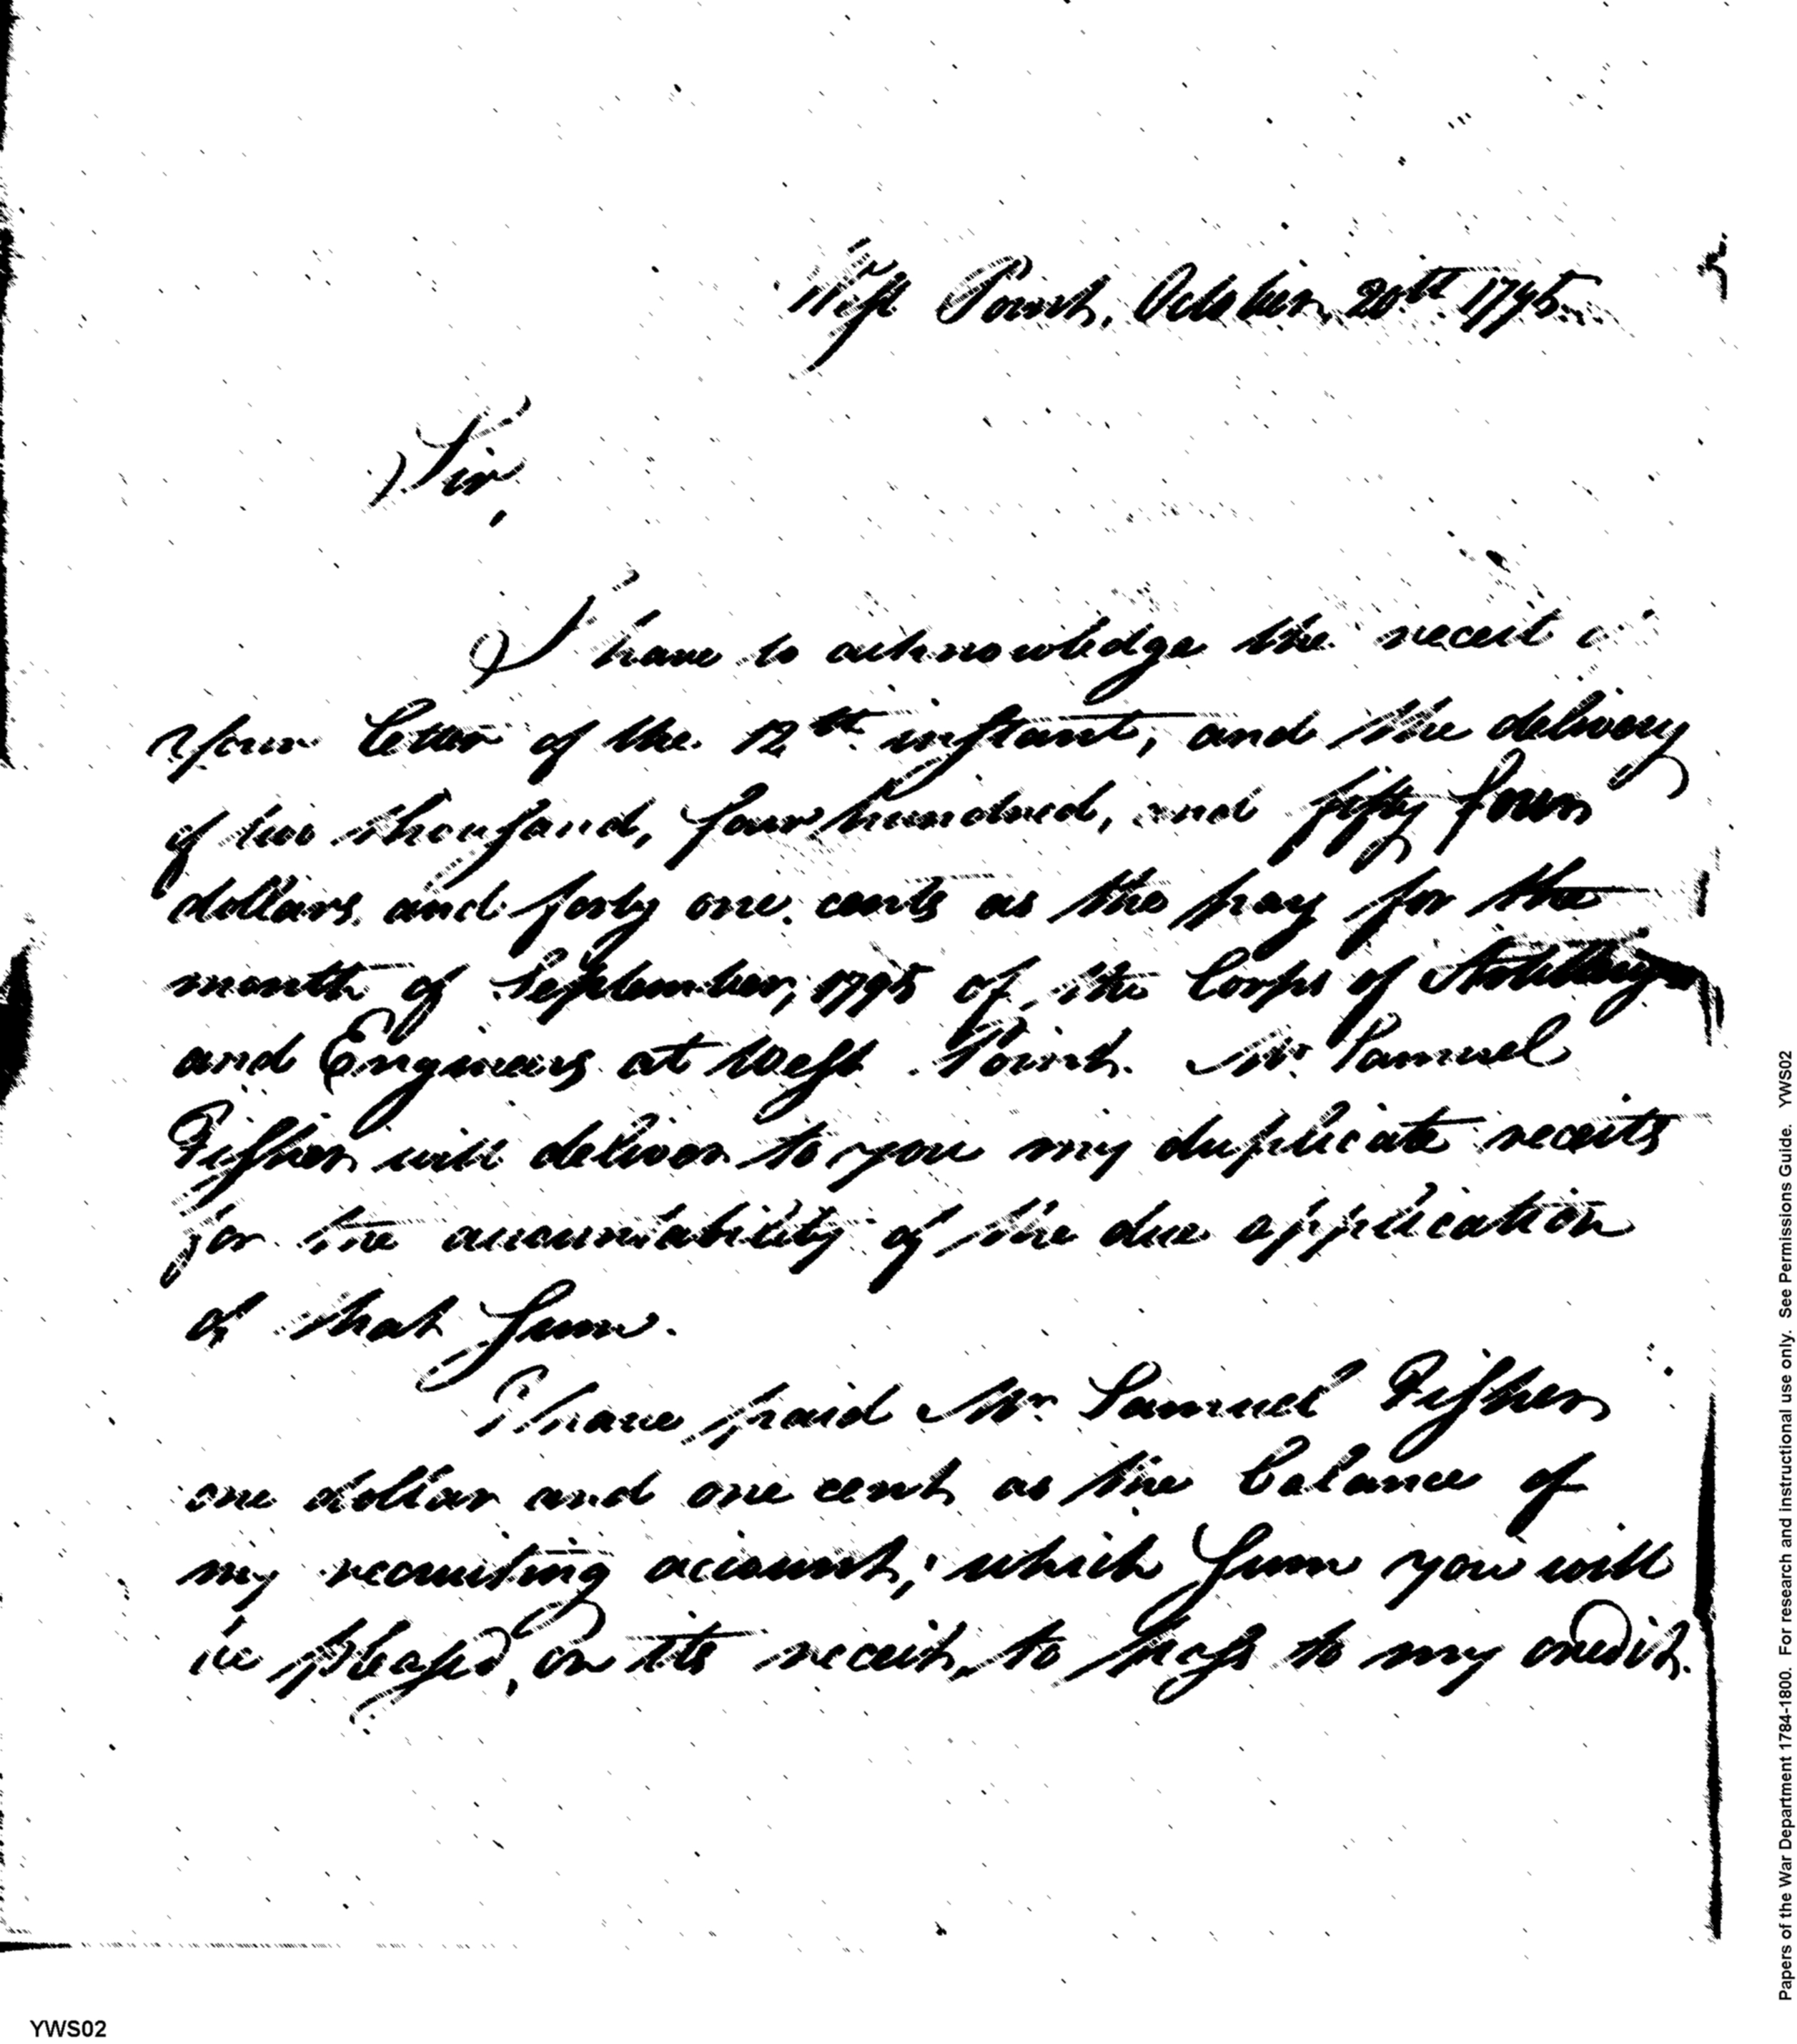 West Point, October, 20th 1795.
Sir,
I have to acknowledge the receit
your letter of the 12th instant, and the delivery
of two thousand, four hundred, and fifty four
dollars and forty one cents as the pay for the
month of September, 1795 of the Corps of Artillery
and Engineers at West Point. Mr Samuel
Fisher will deliver to you my duplicate receits
for the accountability of the due application
of that sum.
I have paid Mr Samuel Fisher
one dollar and one cent, as the balance of
my recruiting account; which sum you will
be pleased, on its receit, to pass to my credit.
Papers of the War Department 1784-1800. For research and instructional use only. See Permissions Guide. YWS02
YWS02